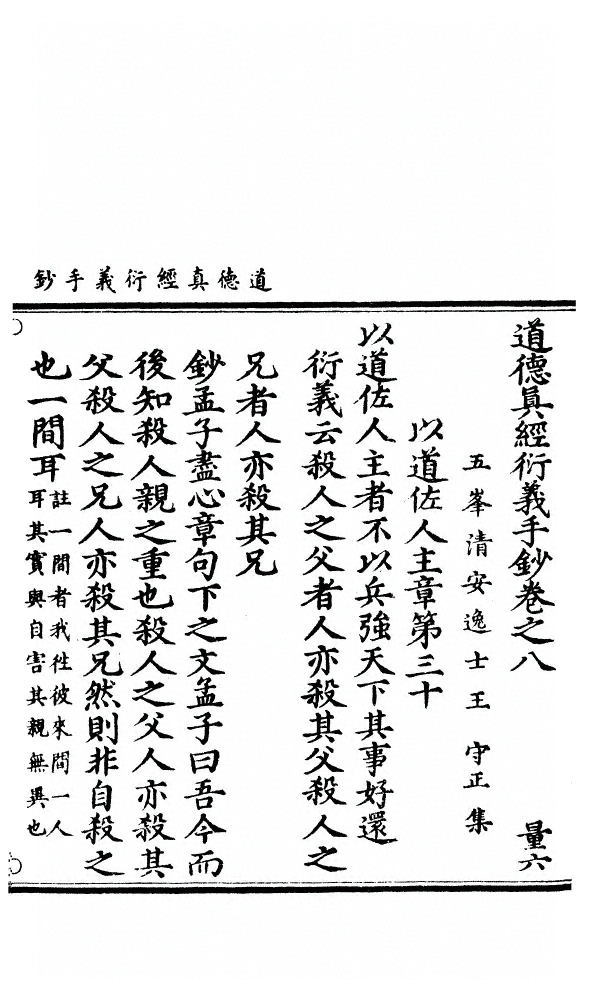 道德真經衍義手鈔
道德眞經衍義手鈔卷之八 量六
五峯清安逸士王 守正集
以道佐人主章第三十
以道佐人主者不以兵強天下其事好還
衍義云殺人之父者人亦殺其父殺人之
兄者人亦殺其兄
鈔孟子盡心章句下之文孟子曰吾今而
後知殺人親之重也殺人之父人亦殺其
父殺人之兄人亦殺其兄然則非自殺之
也一間耳註一間者我徃彼來間一人
耳其實與自害其親無異也